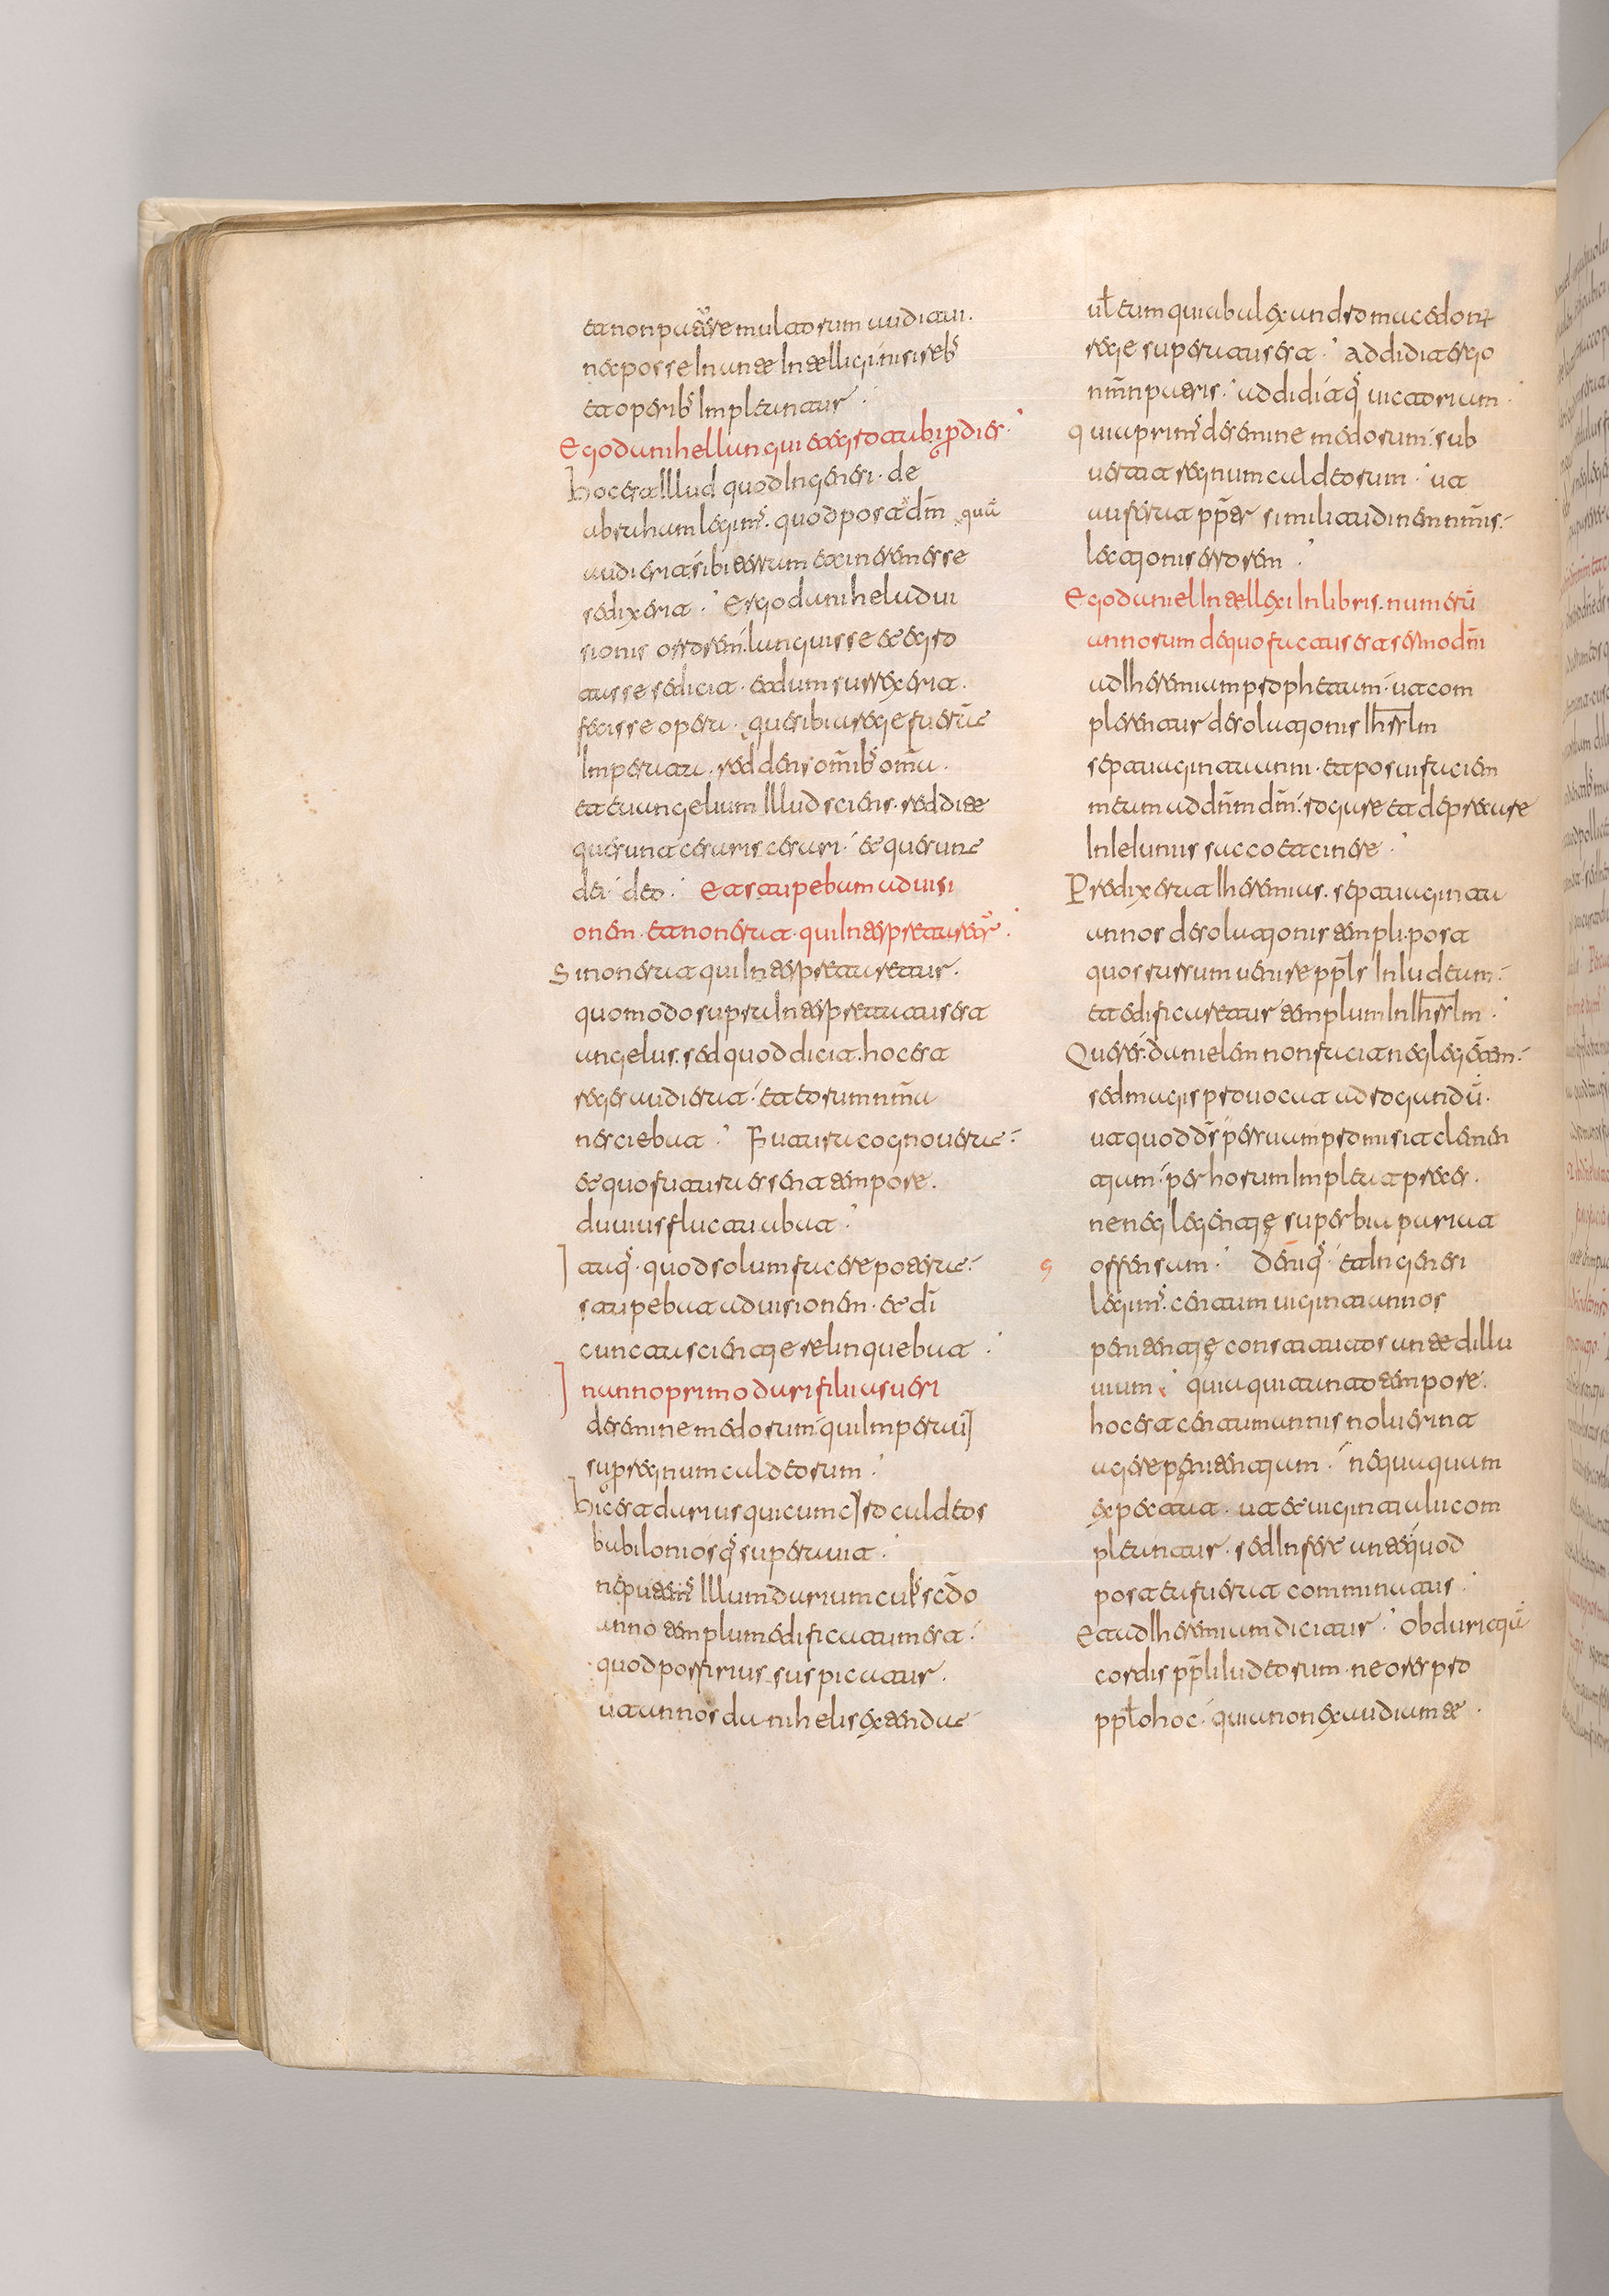 et non patere multorum auditui.
nec posse in ante intelligi. nisi reb;
et operib; impleantur.
Ego danihel langui et egrotabi per dies.
hoc est illud quod in generi. de
abraham legim;. quod post dm̄ quā
audierit sibi terram et cinerem esse
se dixerit. Ergo danihel ad vi
sionis orrorem. languisse et egro
tasse se dicit. et dum surrexerit.
fecisse opera. que sibi a rege fuerāt
imperata. reddens om̄ib; om̄a.
et euangelium illud sciens. reddite
que sunt cesaris cesari. et que sunt
dei deo. Et stupebam ad visi
onem. et non erat. qui interpretaretr̄.
Si non erat qui interpretaretur.
quomodo supra interpretatus est
angelus. sed quod dicit. hoc est
reges audierat. et eorum nm̄a
nesciebat. Futura cognoverat.
et quo futura essent tempore.
dubius fluctuabat.
Itaq;. quod solum facere poterat.
stupebat ad visionem. et dī
cuncta scientie relinquebat.
In anno primo dari filii asueri
de semine medorum qui imperavit
super regnum caldeorum.
hic est darius qui cum cyro caldeos
babiloniosq; superavit.
ne putem; illum darium cui; scd̄o
anno templum edificatum est.
quod porfirius suspicatur.
ut annos danihelis extendat
vel eum qui ab alexandro macedonū
rege superatus est. addidit ergo
nm̄n patris. addidit q; victorium.
quia prim; de semine medorum. sub
vertit regnum caldeorum. ut
auferat pp̄ter similitudinem nm̄is.
lectionis errorem.
Ego daniel intellexi in libris. numerū
annorum de quo factus est sermo dn̄i
ad iheremiam prophetam. ut com
plerentur desolationis ihsrlm
septuaginta anni. et posui faciem
meam ad dn̄m dm̄. rogare et deprecare
in ieiuniis sacco et cinere.
Predixerat iheremias. septuaginta
annos desolationis templi. post
quos rursum venire ppls in iudeam.
et edificaretur templum in ihrslm.
Que res. danielem non facit neglegentem.
sed magis provocat ad rogandū.
ut quod ds̄ per suam promisit clemen
tiam. per horum impleat preces.
ne neglegentię superbia pariat
offensum. Deniq;. et in generi
legim;. centum viginti annos
penitentię constitutos ante dillu
vium. quia qui tanto tempore.
hoc est centum annis noluerint
agere penitentiam. nequaquam
expectat. ut et viginti alii com
pleantur. sed infert ante quod
postea fuerat comminatus.
et ad iheremiam dicitur. Ob duritiā
cordis pp̄li iudeorum. ne ores pro
pplo hoc. quia non exaudiam te.